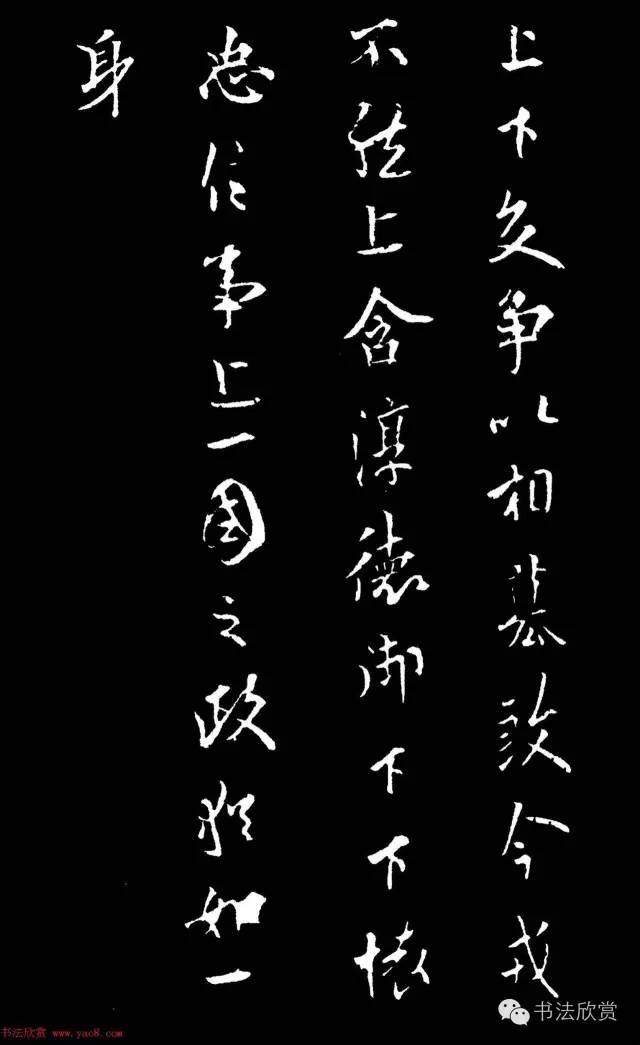 上下交争以相今戎
不然上含淳德御下下懐
忠信事上一國之政猶如一
身
书法欣赏
书法欣赏 www.yac8.com